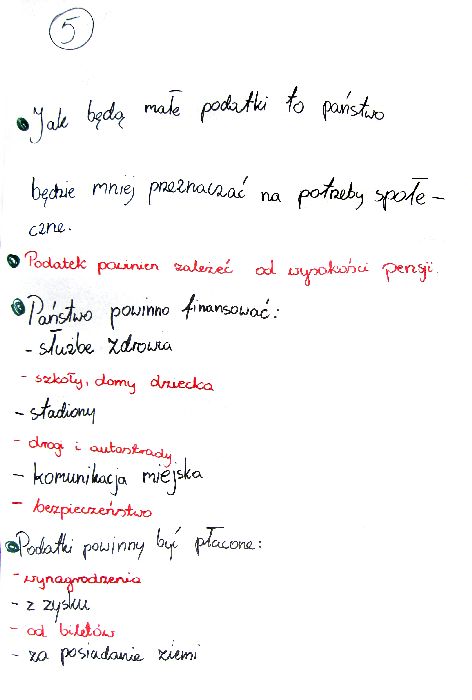 5
Jak będą małe podatki to państwo
będzie mniej przeznaczać na potrzeby społe-
czne.
Podatek powinien zależeć od wysokości pensji.
Państwo powinno finansować:
- służbe zdrowia
- szkoły, domy dziecka
- stadiony
- drogi i autostrady
- komunikacja miejska
- bezpieczeństwo
Podatki powinny być płacone:
- wynagrodzenia
- z zysku
- od biletów
- za posiadanie ziemi